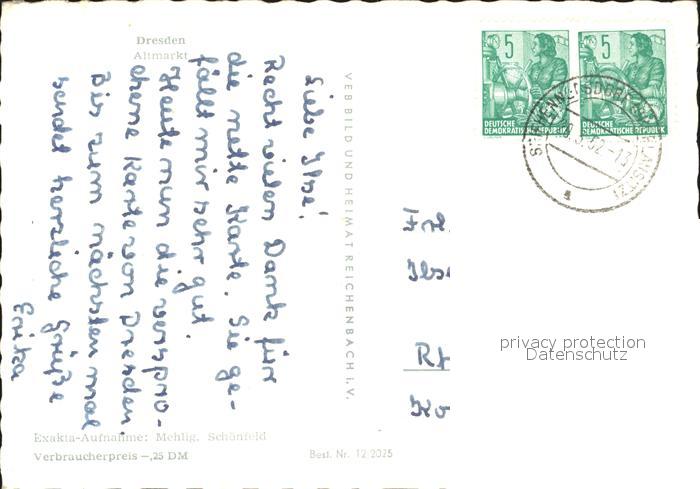 Dresden
Altmarkt
Liebe Ilse!
Recht vielen Dank für
die nette Karte. Sie ge-
fällt mir sehr gut.
Heute nun die verspro-
chene Karte von Dresden.
Bis zum nächsten mal
sendet herzliche Grüße
Erika
Exakta-Aufnahme: Mehlig, Schönfeld
Verbraucherpreis —,25 DM
VEB BILD UND HEIMAT REICHENBACH I. V.
Best. Nr. 12/2025
5
DEUTSCHE
DEMOKRATISCHE REPUBLIK
5
DEUTSCHE
DEMOKRATISCHE REPUBLIK
Frl.
Ilse
privacy protection
Datenschutz